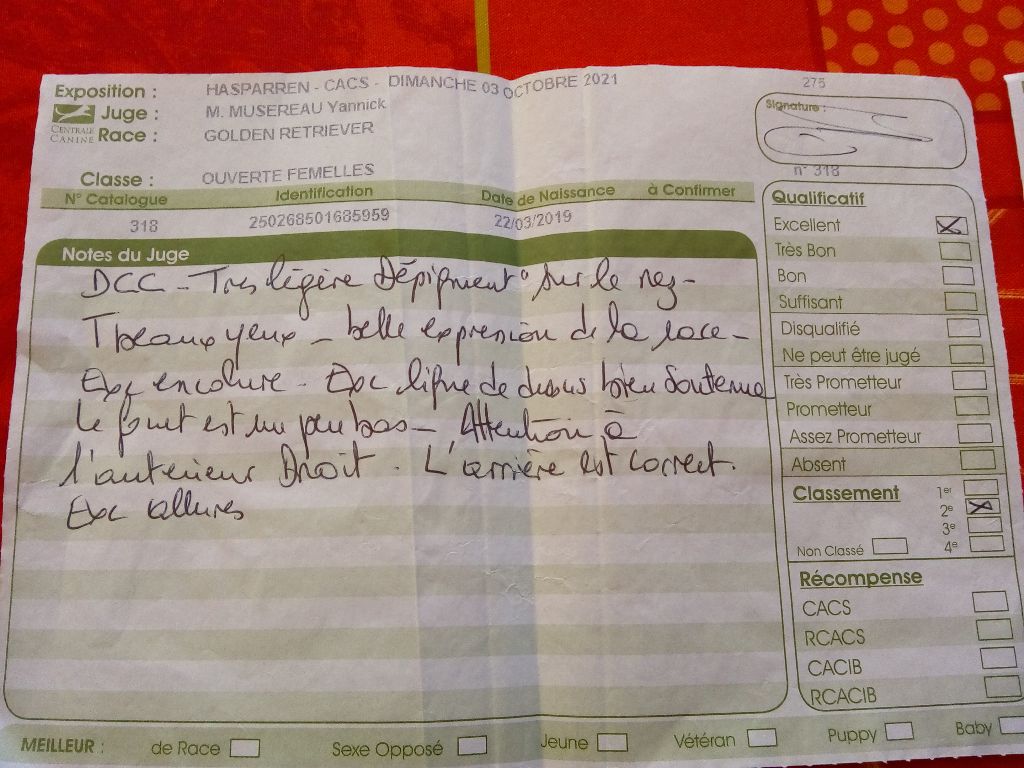 Exposition : HASPARREN - CACS - DIMANCHE 03 OCTOBRE 2021
275
CENTRALE CANINE
Juge : M. MUSEREAU Yannick
Race : GOLDEN RETRIEVER
Signature :
Classe : OUVERTE FEMELLES
n° 318
N° Catalogue Identification Date de Naissance à Confirmer
318 250268501685959 22/03/2019
Notes du Juge
DCC - Tres légère Dépigment° sur le nez -
T beaux yeux - belle expression de la race -
Exc encolure - Exc ligne de dessus bien soutenue
Le fouet est un peu bas - Attention à
l'anterieur Droit. L'arrière est correct.
Exc allures
Qualificatif
Excellent
Très Bon
Bon
Suffisant
Disqualifié
Ne peut être jugé
Très Prometteur
Prometteur
Assez Prometteur
Absent
Classement
1er
2e
3e
Non Classé 4e
Récompense
CACS
RCACS
CACIB
RCACIB
MEILLEUR : de Race Sexe Opposé Jeune Vétéran Puppy Baby